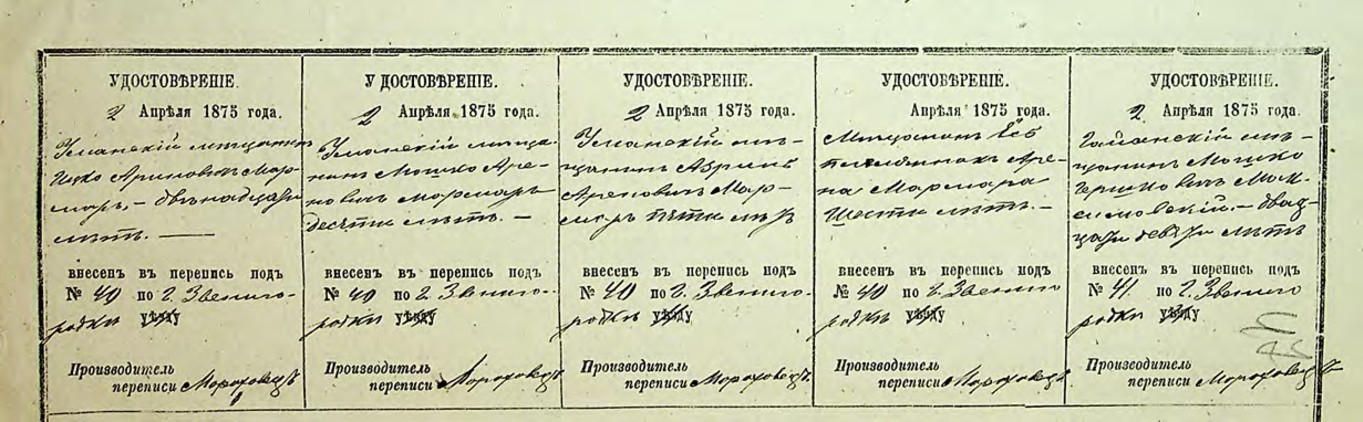 УДОСТОВѢРЕНІЕ.
2 Апрѣля 1875 года.
Уманскій мѣщанинъ
Ицко Ариновичъ Мар-
маръ, — двѣнадцати
лѣтъ. —
внесенъ въ перепись подъ
№ 40 по г. Звениго-
родки уѣзду
Производитель
переписи Мороховецъ
УДОСТОВѢРЕНІЕ.
2 Апрѣля 1875 года.
Уманскій мѣща-
нинъ Мошко Аре-
новичъ Мармаръ
десяти лѣтъ. —
внесенъ въ перепись подъ
№ 40 по г. Звениго-
родки уѣзду
Производитель
переписи Мороховецъ
УДОСТОВѢРЕНІЕ.
2 Апрѣля 1875 года.
Уманскій мѣ-
щанинъ Абрумъ
Ареновичъ Мар-
маръ пяти лѣтъ
внесенъ въ перепись подъ
№ 40 по г. Звениго-
родки уѣзду
Производитель
переписи Мороховецъ.
УДОСТОВѢРЕНІЕ.
Апрѣля 1875 года.
Аре-
на Мармара
Шести лѣтъ. —
внесенъ въ перепись подъ
№ 40 по г. Звениго
родки уѣзду
Производитель
переписи Мороховецъ
УДОСТОВѢРЕНІЕ.
2 Апрѣля 1875 года.
мѣ-
щанинъ Мошко
Гершковичъ
— двад-
цати девяти лѣтъ
внесенъ въ перепись подъ
№ 41 по г. Звениго
родки уѣзду
Производитель
переписи Мороховецъ